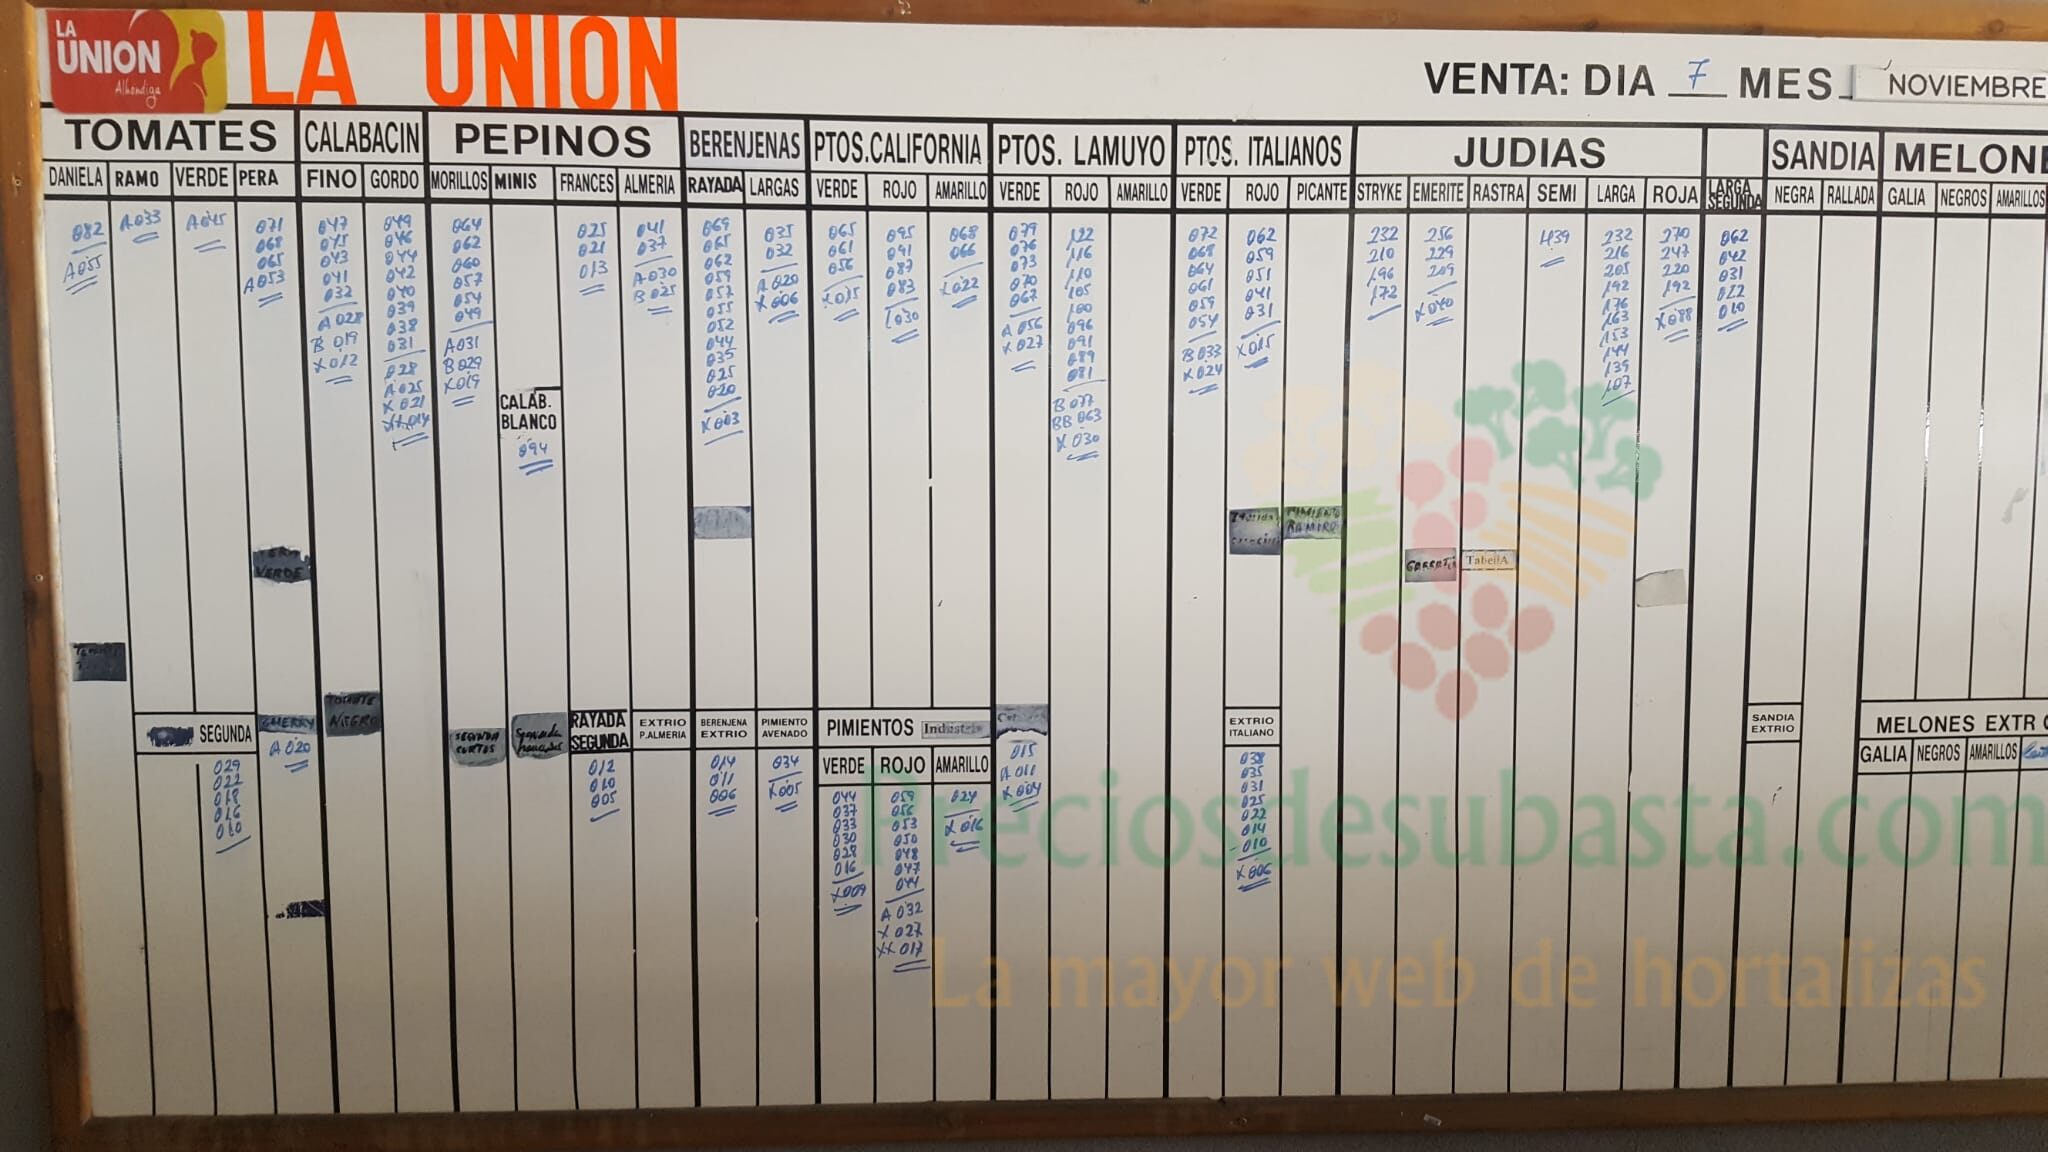 LA UNION Alhondiga
LA UNION
VENTA: DIA 7 MES NOVIEMBRE
TOMATES CALABACIN PEPINOS BERENJENAS PTOS.CALIFORNIA PTOS. LAMUYO PTOS. ITALIANOS JUDIAS SANDIA MELONE
DANIELA RAMO VERDE PERA FINO GORDO MORILLOS MINIS FRANCES ALMERIA RAYADA LARGAS VERDE ROJO AMARILLO VERDE ROJO AMARILLO VERDE ROJO PICANTE STRYKE EMERITE RASTRA SEMI LARGA ROJA LARGA SEGUNDA NEGRA RALLADA GALIA NEGROS AMARILLOS
082
A055
A033
A045
071
068
065
A053
047
045
043
041
032
A028
B 019
X012
049
046
044
042
040
039
038
031
028
A025
X021
XX014
064
062
060
057
054
049
A031
B029
X019
CALAB.
BLANCO
094
025
021
013
041
037
A030
B025
069
065
062
059
057
055
052
044
035
025
020
X003
035
032
A020
X006
065
061
056
X015
095
091
087
083
030
068
066
X022
079
076
073
070
067
A056
X027
122
116
110
105
100
096
091
089
081
B077
BB063
X030
072
068
064
061
059
054
B033
X024
062
059
051
041
031
X015
232
210
196
172
256
229
209
X040
439
232
216
205
192
176
163
153
144
139
107
270
247
220
192
X088
062
042
031
022
010
VERDE
PIMIENTO
RAMIRO
TabellA
SEGUNDA
029
022
018
016
010
CHERRY
A020
TOMATE
NEGRO
SEGUNDA
CORTOS
Segunda
RAYADA
SEGUNDA
012
010
005
EXTRIO
P.ALMERIA
BERENJENA
EXTRIO
014
011
006
PIMIENTO
AVENADO
034
X005
PIMIENTOS
VERDE ROJO AMARILLO
044
037
033
030
028
016
X009
059
056
053
050
048
047
044
A032
X027
XX017
024
X016
015
A011
X004
EXTRIO
ITALIANO
038
035
031
025
022
014
010
X006
SANDIA
EXTRIO
MELONES EXTR
GALIA NEGROS AMARILLOS
Preciosdesubasta.com
La mayor web de hortalizas